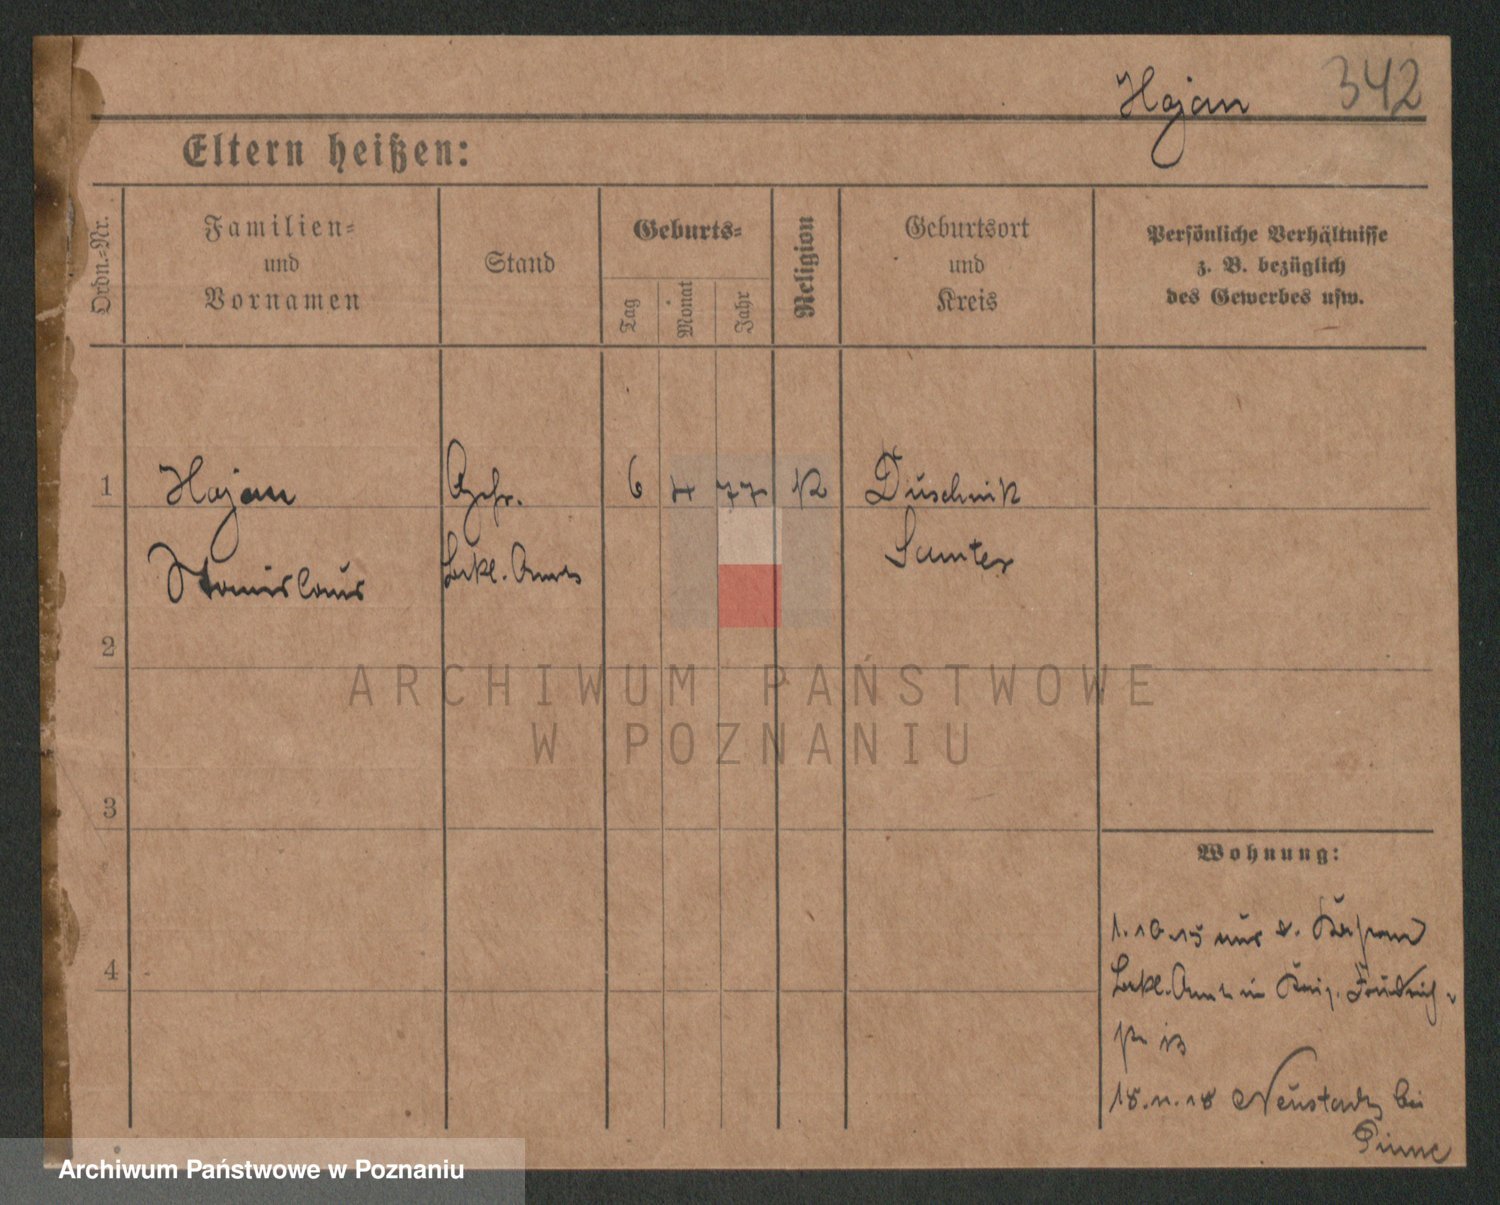 Hajan 342
Eltern heißen:
Ordn.-Nr.
Familien-
und
Vornamen
Stand
Geburts-
Tag
Monat
Jahr
Religion
Geburtsort
und
Kreis
Persönliche Verhältnisse
z. B. bezüglich
des Gewerbes usw.
1 Hajan 6 4 77 K Duschnik
Stanislaus Samter
2
3
4
Wohnung:
1.10.15
Bekl. Amt in König. Friedrich
18.11.18 Neustadt bei
Pinne
ARCHIWUM PAŃSTWOWE
W POZNANIU
Archiwum Państwowe w Poznaniu